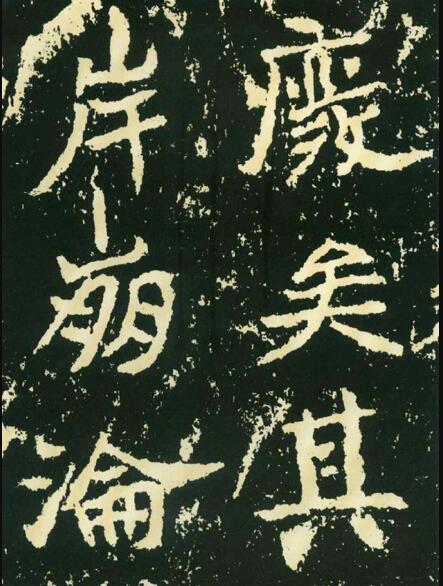 廢矣其
岸崩淪